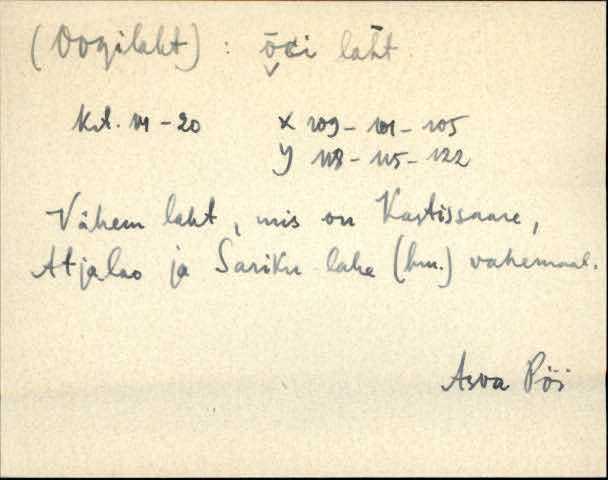 (Oogilaht) : ōɢi laht
Krt. 101-20 X 109-101-105
Y 118-115-122
Vähem laht, mis on Kastissaare,
Atjalao ja Sariku lahe (hm.) vahemaal.
Asva Pöi